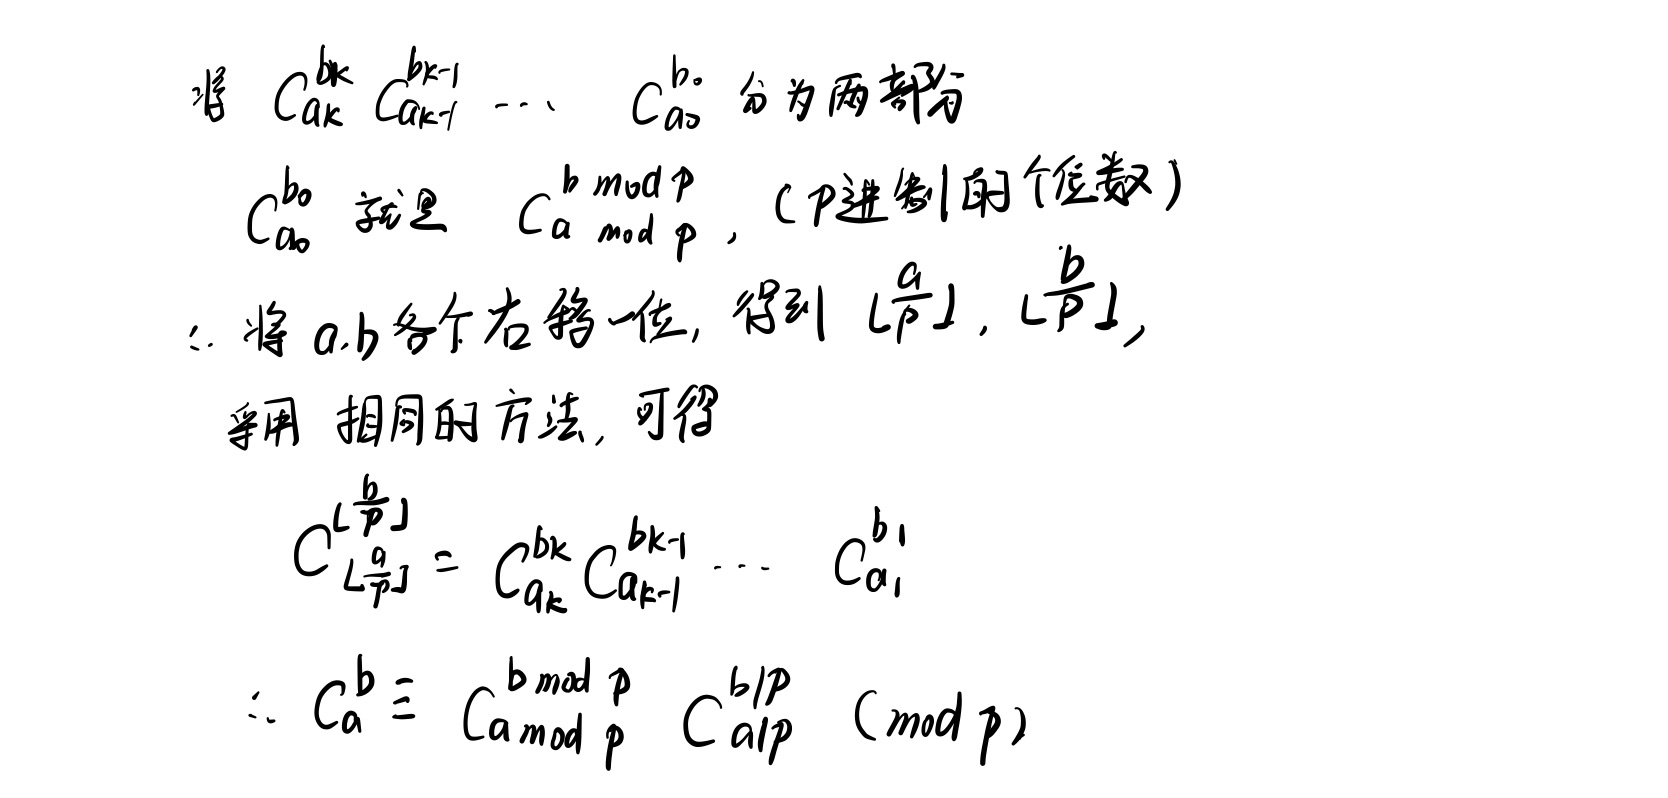 将 C_{a_k}^{b_k} C_{a_{k-1}}^{b_{k-1}} ... C_{a_0}^{b_0} 分为两部分
C_{a_0}^{b_0} 就是 C_{a mod p}^{b mod p}, (P进制的个位数)
∴ 将 a.b 各个右移一位, 得到 ⌊a/p⌋, ⌊b/p⌋,
采用 相同的方法, 可得
C_{⌊a/p⌋}^{⌊b/p⌋} = C_{a_k}^{b_k} C_{a_{k-1}}^{b_{k-1}} ... C_{a_1}^{b_1}
∴ C_a^b ≡ C_{a mod p}^{b mod p} C_{a/p}^{b/p} (mod p)